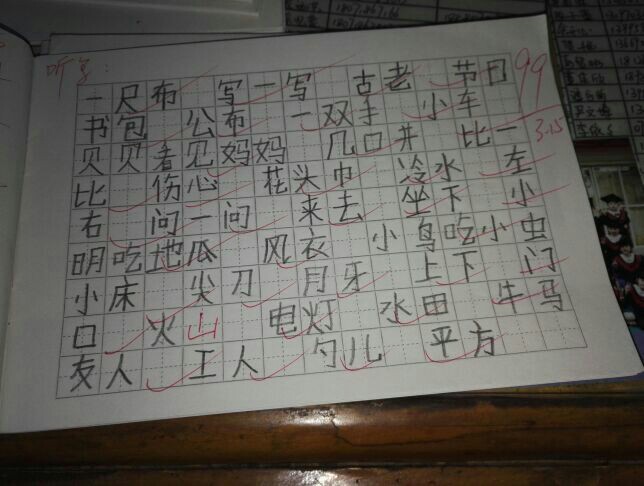 听写:
99
3.15
一尺布 写一写 古老 节日
书包 公布 一双手 小车
贝贝看见妈妈 几口井 比一
比 伤心 花头巾 冷水 左
右 问一问 来去 坐下 小
明吃地瓜 风衣 小鸟吃小虫
小床 尖刀 月牙 上下 门
口 火山 电灯 水田 牛马
友人 工人 勺儿 平方